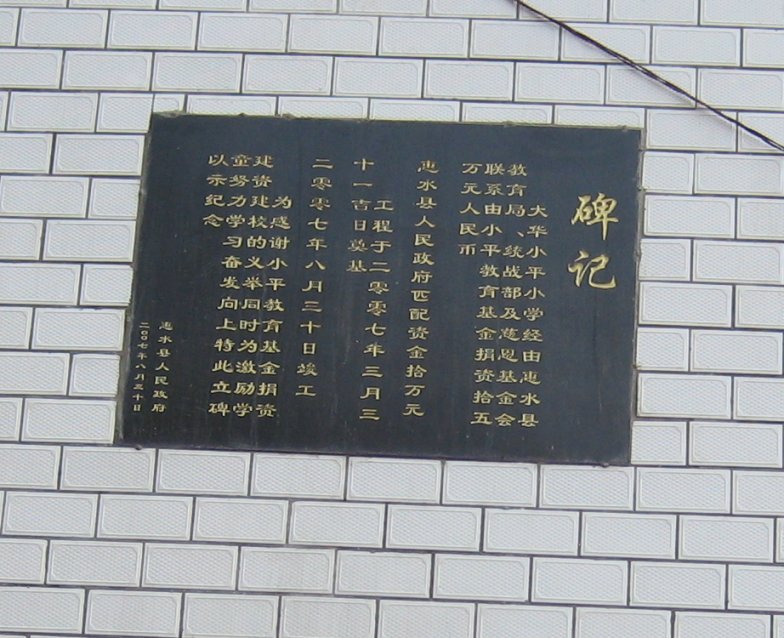 碑记
大华小平小学经由惠水县
教育局、统战部及慈恩基金会
联系由小平教育基金捐资拾五
万元人民币
惠水县人民政府匹配资金拾万元
工程于二零零七年三月三
十一吉日奠基
二零零七年八月三十日竣工
为感谢小平教育基金捐资
建资建校的义举同时为激励学
童努力学习奋发向上特此立碑
以示纪念
惠水县人民政府
二〇〇七年八月三十日